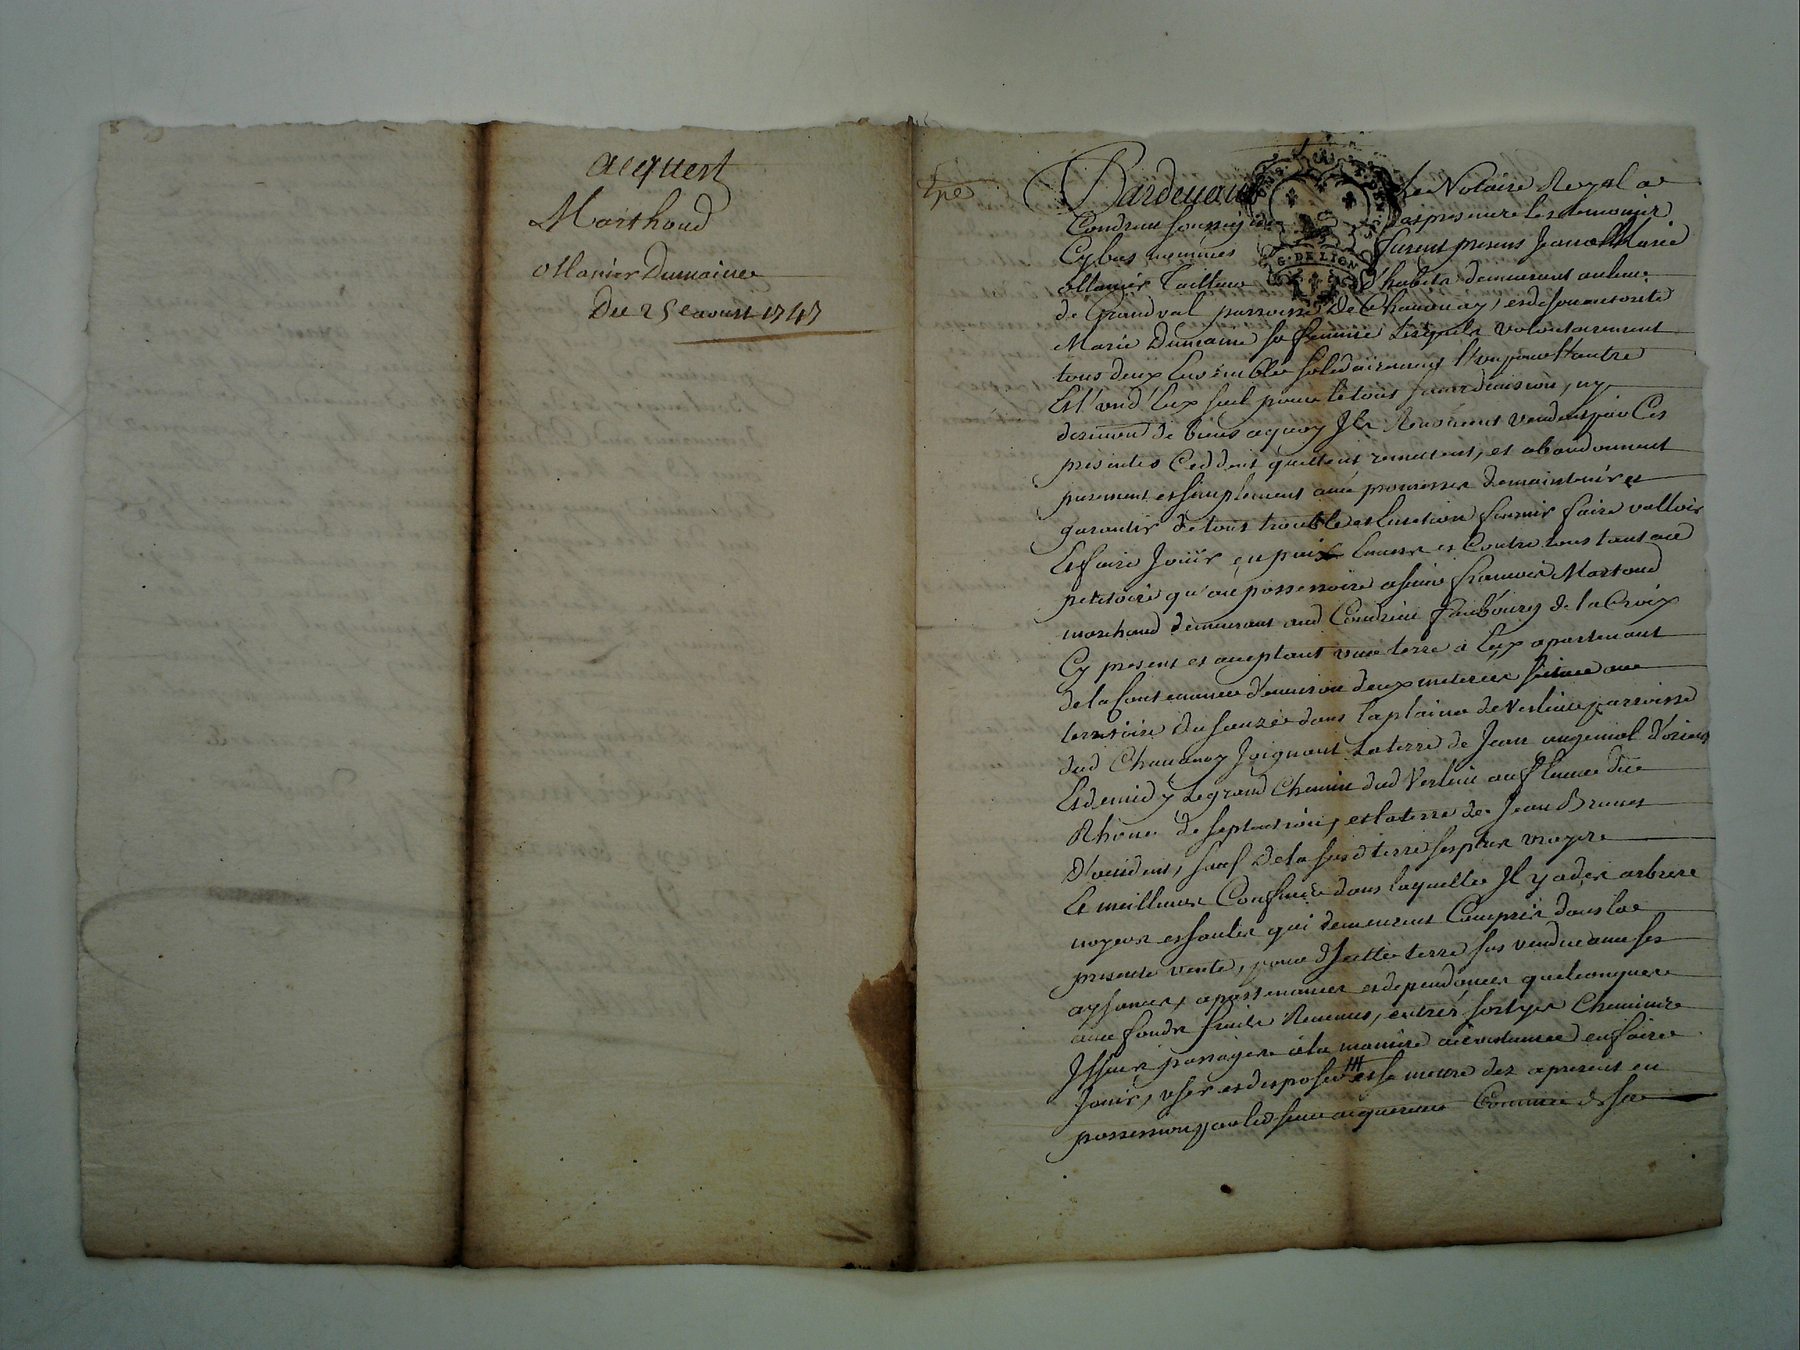 acquest
Marthoud
Manier Dumaine
Du 25e aoust 1747
Pardevant Le Notaire Royal a
Condrieu soussigné et presence les temoins
Cy bas nommés furent presens Jean Marie
Manier Tailleur G. DE LION d'habits demeurant au lieu
de Grandval parroisse De Chavanay, et de son autorité
Marie Dumaine sa femme Lesquels volontairement
tous deux Ensemble solidairement l'un pour l'autre
Et l'un d'Eux seul pour le tout sans division, ny
de biens a quoy Ils Renoncent vendent par Ces
presentes Ceddent quittent remettent, et abandonnent
purement et simplement avec promesse de maintenir et
garantir de tous trouble et Eviction fournir faire valloir
Et faire Jouir en paix Envers et Contre tous tant au
petitoire qu'au possessoire a sieur françois Martoud
marchand demeurant aud Condrieu faubourg de la Croix
Cy present et acceptant une terre a Eux apartenant
de la Contenance d'environ deux meterées Scituée au
territoire Du dans la plaine de Verlieu parroisse
dud Chavanay Joignant La terre de Jean d'orient
Et de midy Le grand Chemin dud Verlieu au fleuve du
Rhone de septentrion, et la terre de Jean Brunet
D'occident, sauf de la susd terre ses plus vrayes
Et meilleurs Confins dans laquelle Il y a des arbres
noyers et saules qui demeurent Compris dans la
presente vente, pour d Icelle terre sus vendue avec ses
aysances, apartenances et dependances quelconques
avec fonds fruits Revenus, entrés sortyes Chemins
Issues passages a la maniere accoutumée en faire
Jouir, user et disposer et se mettre dez apresent en
possession par led sieur acquereur Comme de sa